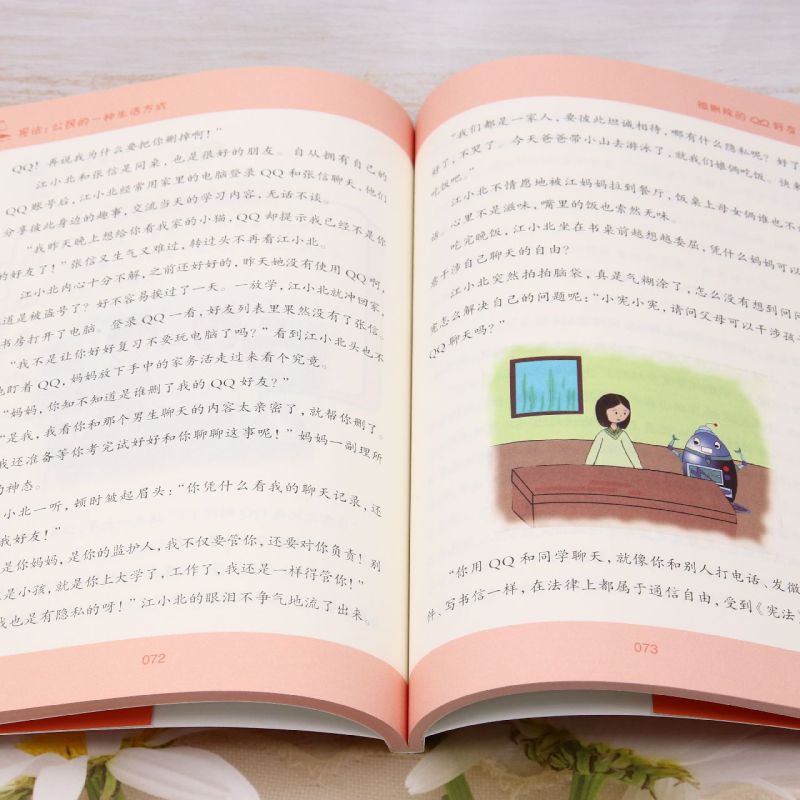 宪法：公民的一种生活方式
QQ！再说我为什么要把你删掉啊！”
江小北和张信是同桌，也是很好的朋友。自从拥有自己的
QQ账号后，江小北经常用家里的电脑登录QQ和张信聊天，他们
分享彼此身边的趣事，交流当天的学习内容，无话不谈。
“我昨天晚上想给你看我家的小猫，QQ却提示我已经不是你
的好友了！”张信又生气又难过，转过头不再看江小北。
江小北内心十分不解，之前还好好的，昨天她没有使用QQ啊，
道是被盗号了？好不容易挨过了一天。一放学，江小北就冲回家，
书房打开了电脑。登录QQ一看，好友列表里果然没有了张信。
“我不是让你好好复习不要玩电脑了吗？”看到江小北头也不
地盯着QQ，妈妈放下手中的家务活走过来看个究竟。
“妈妈，你知不知道是谁删了我的QQ好友？”
“是我，我看你和那个男生聊天的内容太亲密了，就帮你删了。
我还准备等你考完试好好和你聊聊这事呢！”妈妈一副理所
的神态。
小北一听，顿时皱起眉头：“你凭什么看我的聊天记录，还
我好友！”
是你妈妈，是你的监护人，我不仅要管你，还要对你负责！别
是小孩，就是你上大学了，工作了，我还是一样得管你！”
我也是有隐私的呀！”江小北的眼泪不争气地流了出来。
072
被删除的QQ好友
“我们都是一家人，要彼此坦诚相待，哪有什么隐私呢？好了
好了，不哭了。今天爸爸带小山去游泳了，就我们娘俩吃饭。快来
吃饭吧。”
江小北不情愿地被江妈妈拉到餐厅，饭桌上母女俩谁也不
话。心里不是滋味，嘴里的饭也索然无味。
吃完晚饭，江小北坐在书桌前越想越委屈，凭什么妈妈可以
意干涉自己聊天的自由？
江小北突然拍拍脑袋，真是气糊涂了，怎么没有想到问问
宪怎么解决自己的问题呢：“小宪小宪，请问父母可以干涉孩
QQ聊天吗？”
“你用QQ和同学聊天，就像你和别人打电话、发微
件、写书信一样，在法律上都属于通信自由，受到《宪法》
073